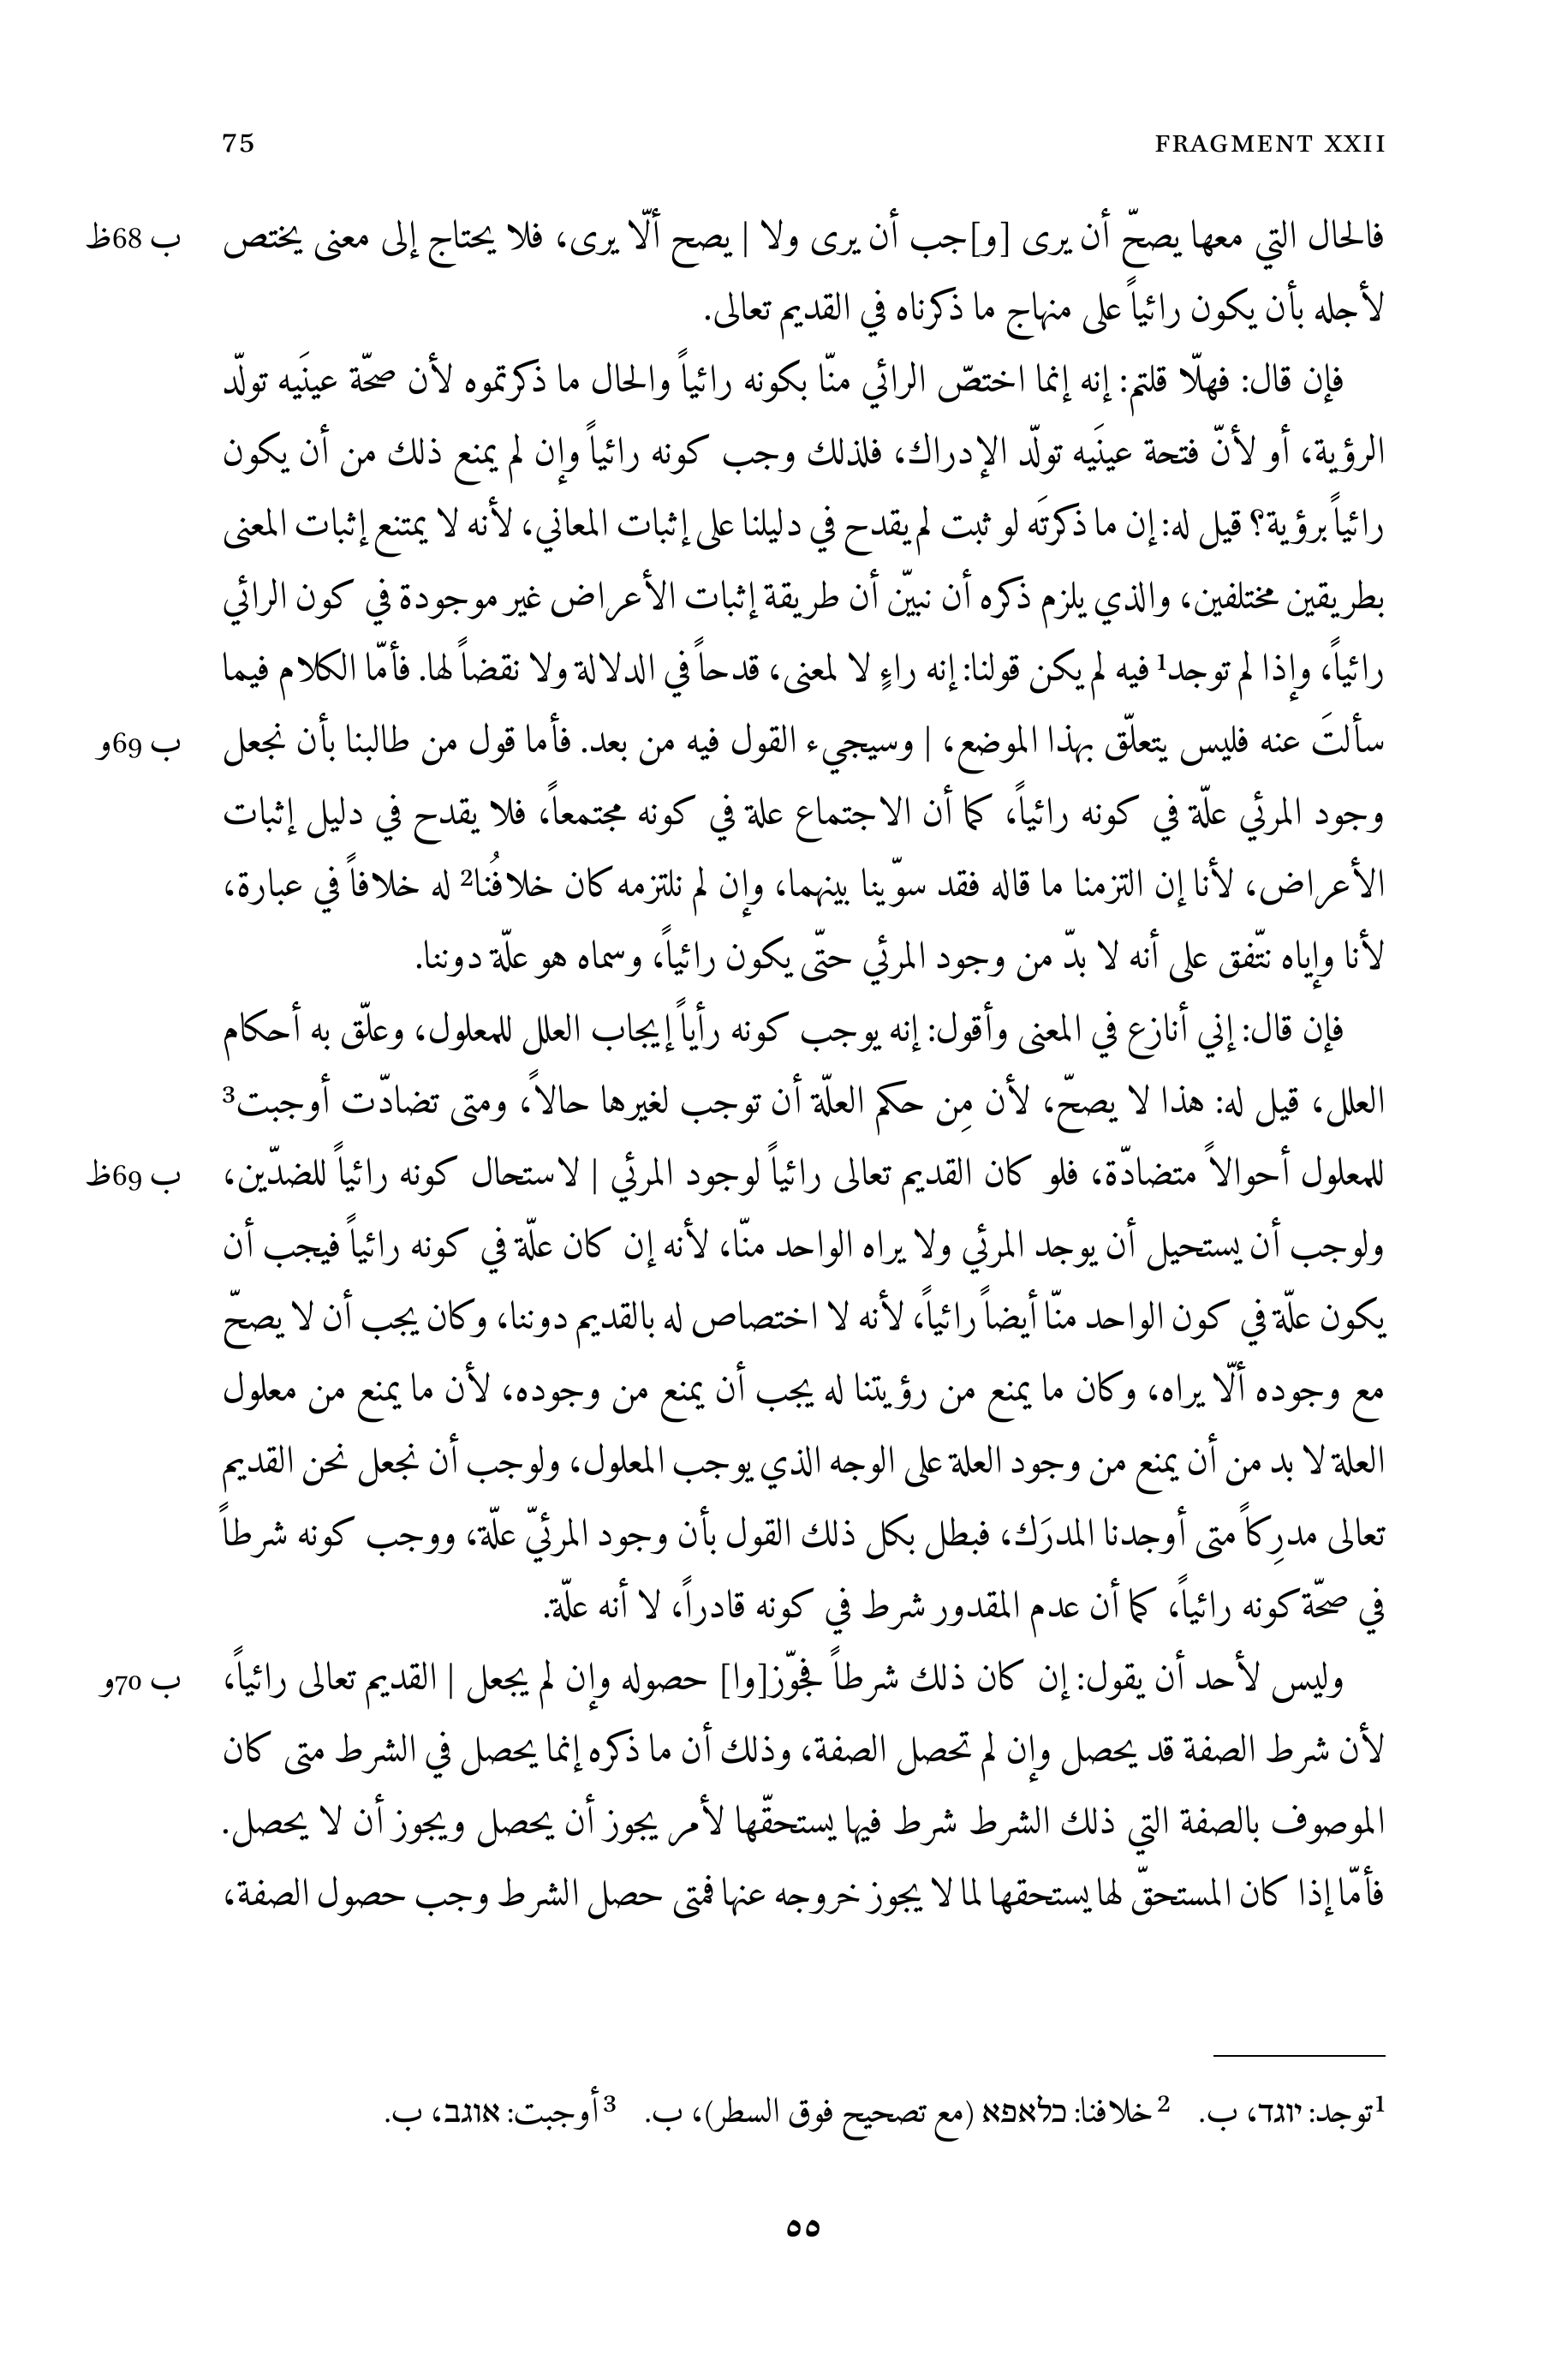 75 FRAGMENT XXII
فالحال التي معها يصحّ أن يرى [و]جب أن يرى ولا | يصح ألّا يرى، فلا يحتاج إلى معنى يختص ب 68ظ
لأجله بأن يكون رائياً على منهاج ما ذكرناه في القديم تعالى.
فإن قال: فهلّا قلتم: إنه إنما اختصّ الرائي منّا بكونه رائياً والحال ما ذكرتموه لأن صحّة عينَيه تولّد
الرؤية، أو لأنّ فتحة عينَيه تولّد الإدراك، فلذلك وجب كونه رائياً وإن لم يمنع ذلك من أن يكون
رائياً برؤية؟ قيل له: إن ما ذكرتَه لو ثبت لم يقدح في دليلنا على إثبات المعاني، لأنه لا يمتنع إثبات المعنى
بطريقين مختلفين، والذي يلزم ذكره أن نبيّن أن طريقة إثبات الأعراض غير موجودة في كون الرائي
رائياً، وإذا لم توجد1 فيه لم يكن قولنا: إنه راءٍ لا لمعنى، قدحاً في الدلالة ولا نقضاً لها. فأمّا الكلام فيما
سألتَ عنه فليس يتعلّق بهذا الموضع، | وسيجيء القول فيه من بعد. فأما قول من طالبنا بأن نجعل ب 69و
وجود المرئي علّة في كونه رائياً، كما أن الاجتماع علة في كونه مجتمعاً، فلا يقدح في دليل إثبات
الأعراض، لأنا إن التزمنا ما قاله فقد سوّينا بينهما، وإن لم نلتزمه كان خلافُنا2 له خلافاً في عبارة،
لأنا وإياه نتّفق على أنه لا بدّ من وجود المرئي حتّى يكون رائياً، وسماه هو علّة دوننا.
فإن قال: إني أنازع في المعنى وأقول: إنه يوجب كونه رأياً إيجاب العلل للمعلول، وعلّق به أحكام
العلل، قيل له: هذا لا يصحّ، لأن مِن حكم العلّة أن توجب لغيرها حالاً، ومتى تضادّت أوجبت3
للمعلول أحوالاً متضادّة، فلو كان القديم تعالى رائياً لوجود المرئي | لاستحال كونه رائياً للضدّين، ب 69ظ
ولوجب أن يستحيل أن يوجد المرئي ولا يراه الواحد منّا، لأنه إن كان علّة في كونه رائياً فيجب أن
يكون علّة في كون الواحد منّا أيضاً رائياً، لأنه لا اختصاص له بالقديم دوننا، وكان يجب أن لا يصحّ
مع وجوده ألّا يراه، وكان ما يمنع من رؤيتنا له يجب أن يمنع من وجوده، لأن ما يمنع من معلول
العلة لا بد من أن يمنع من وجود العلة على الوجه الذي يوجب المعلول، ولوجب أن نجعل نحن القديم
تعالى مدرِكاً متى أوجدنا المدرَك، فبطل بكل ذلك القول بأن وجود المرئيّ علّة، ووجب كونه شرطاً
في صحّة كونه رائياً، كما أن عدم المقدور شرط في كونه قادراً، لا أنه علّة.
وليس لأحد أن يقول: إن كان ذلك شرطاً فجوّز[وا] حصوله وإن لم يجعل | القديم تعالى رائياً، ب 70و
لأن شرط الصفة قد يحصل وإن لم تحصل الصفة، وذلك أن ما ذكره إنما يحصل في الشرط متى كان
الموصوف بالصفة التي ذلك الشرط شرط فيها يستحقّها لأمر يجوز أن يحصل ويجوز أن لا يحصل.
فأمّا إذا كان المستحقّ لها يستحقها لما لا يجوز خروجه عنها فمتى حصل الشرط وجب حصول الصفة،
1توجد: יוגד، ب. 2خلافنا: כלאפא (مع تصحيح فوق السطر)، ب. 3أوجبت: אוגב، ب.
٥٥